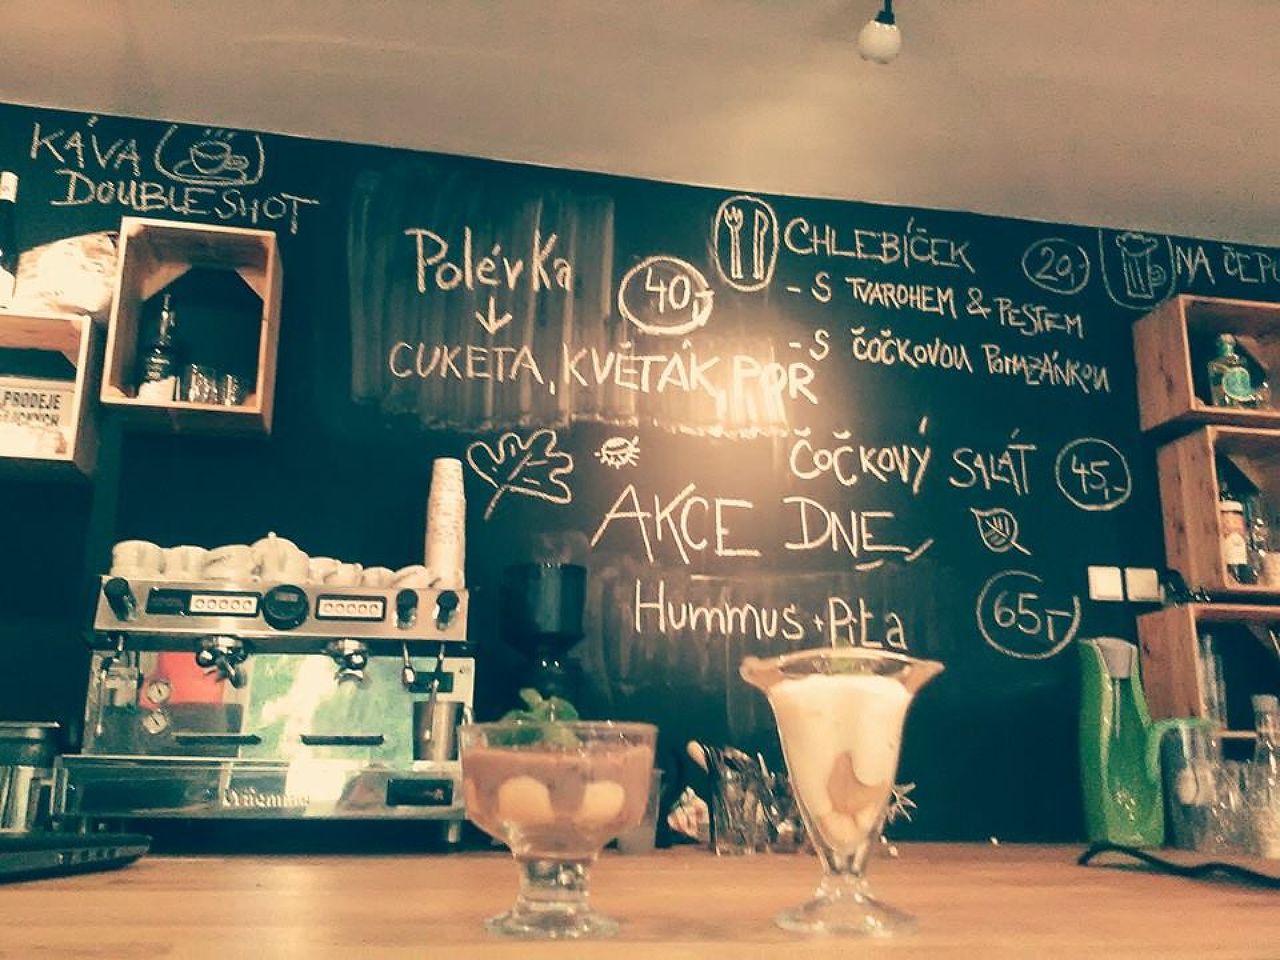 KÁVA
DOUBLESHOT
Polévka
40,-
CUKETA, KVĚTÁK, PÓR
CHLEBÍČEK
20,-
- S TVAROHEM & PESTEM
- S ČOČKOVOU POMAZÁNKOU
ČOČKOVÝ SALÁT
45,-
AKCE DNE
Hummus + Pita
65,-
NA ČEPU
PRODEJE